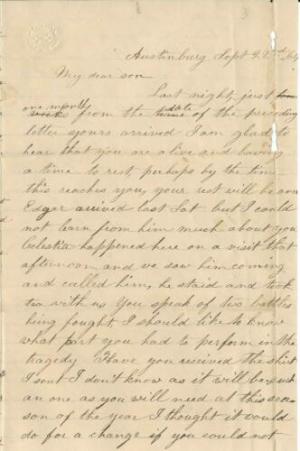 Austinburg Sept 22nd 64
My dear son
Last night, just
one month
from the date of the preceding
letter yours arrived I am glad to
hear that you are alive and having
a time to rest, perhaps by the time
this reaches you, your rest will be over
Edgar arrived last Sat but I could
not learn from him much about you
Celestia happened here on a visit that
afternoon and we saw him coming
and called him, he staid and took
tea with us You speak of two battles
being fought, I should like to know
what part you had to perform in the
tragedy Have you received the shirt
I sent I don't know as it will be such
an one as you will need at this sea
son of the year I thought it would
do for a change if you could not